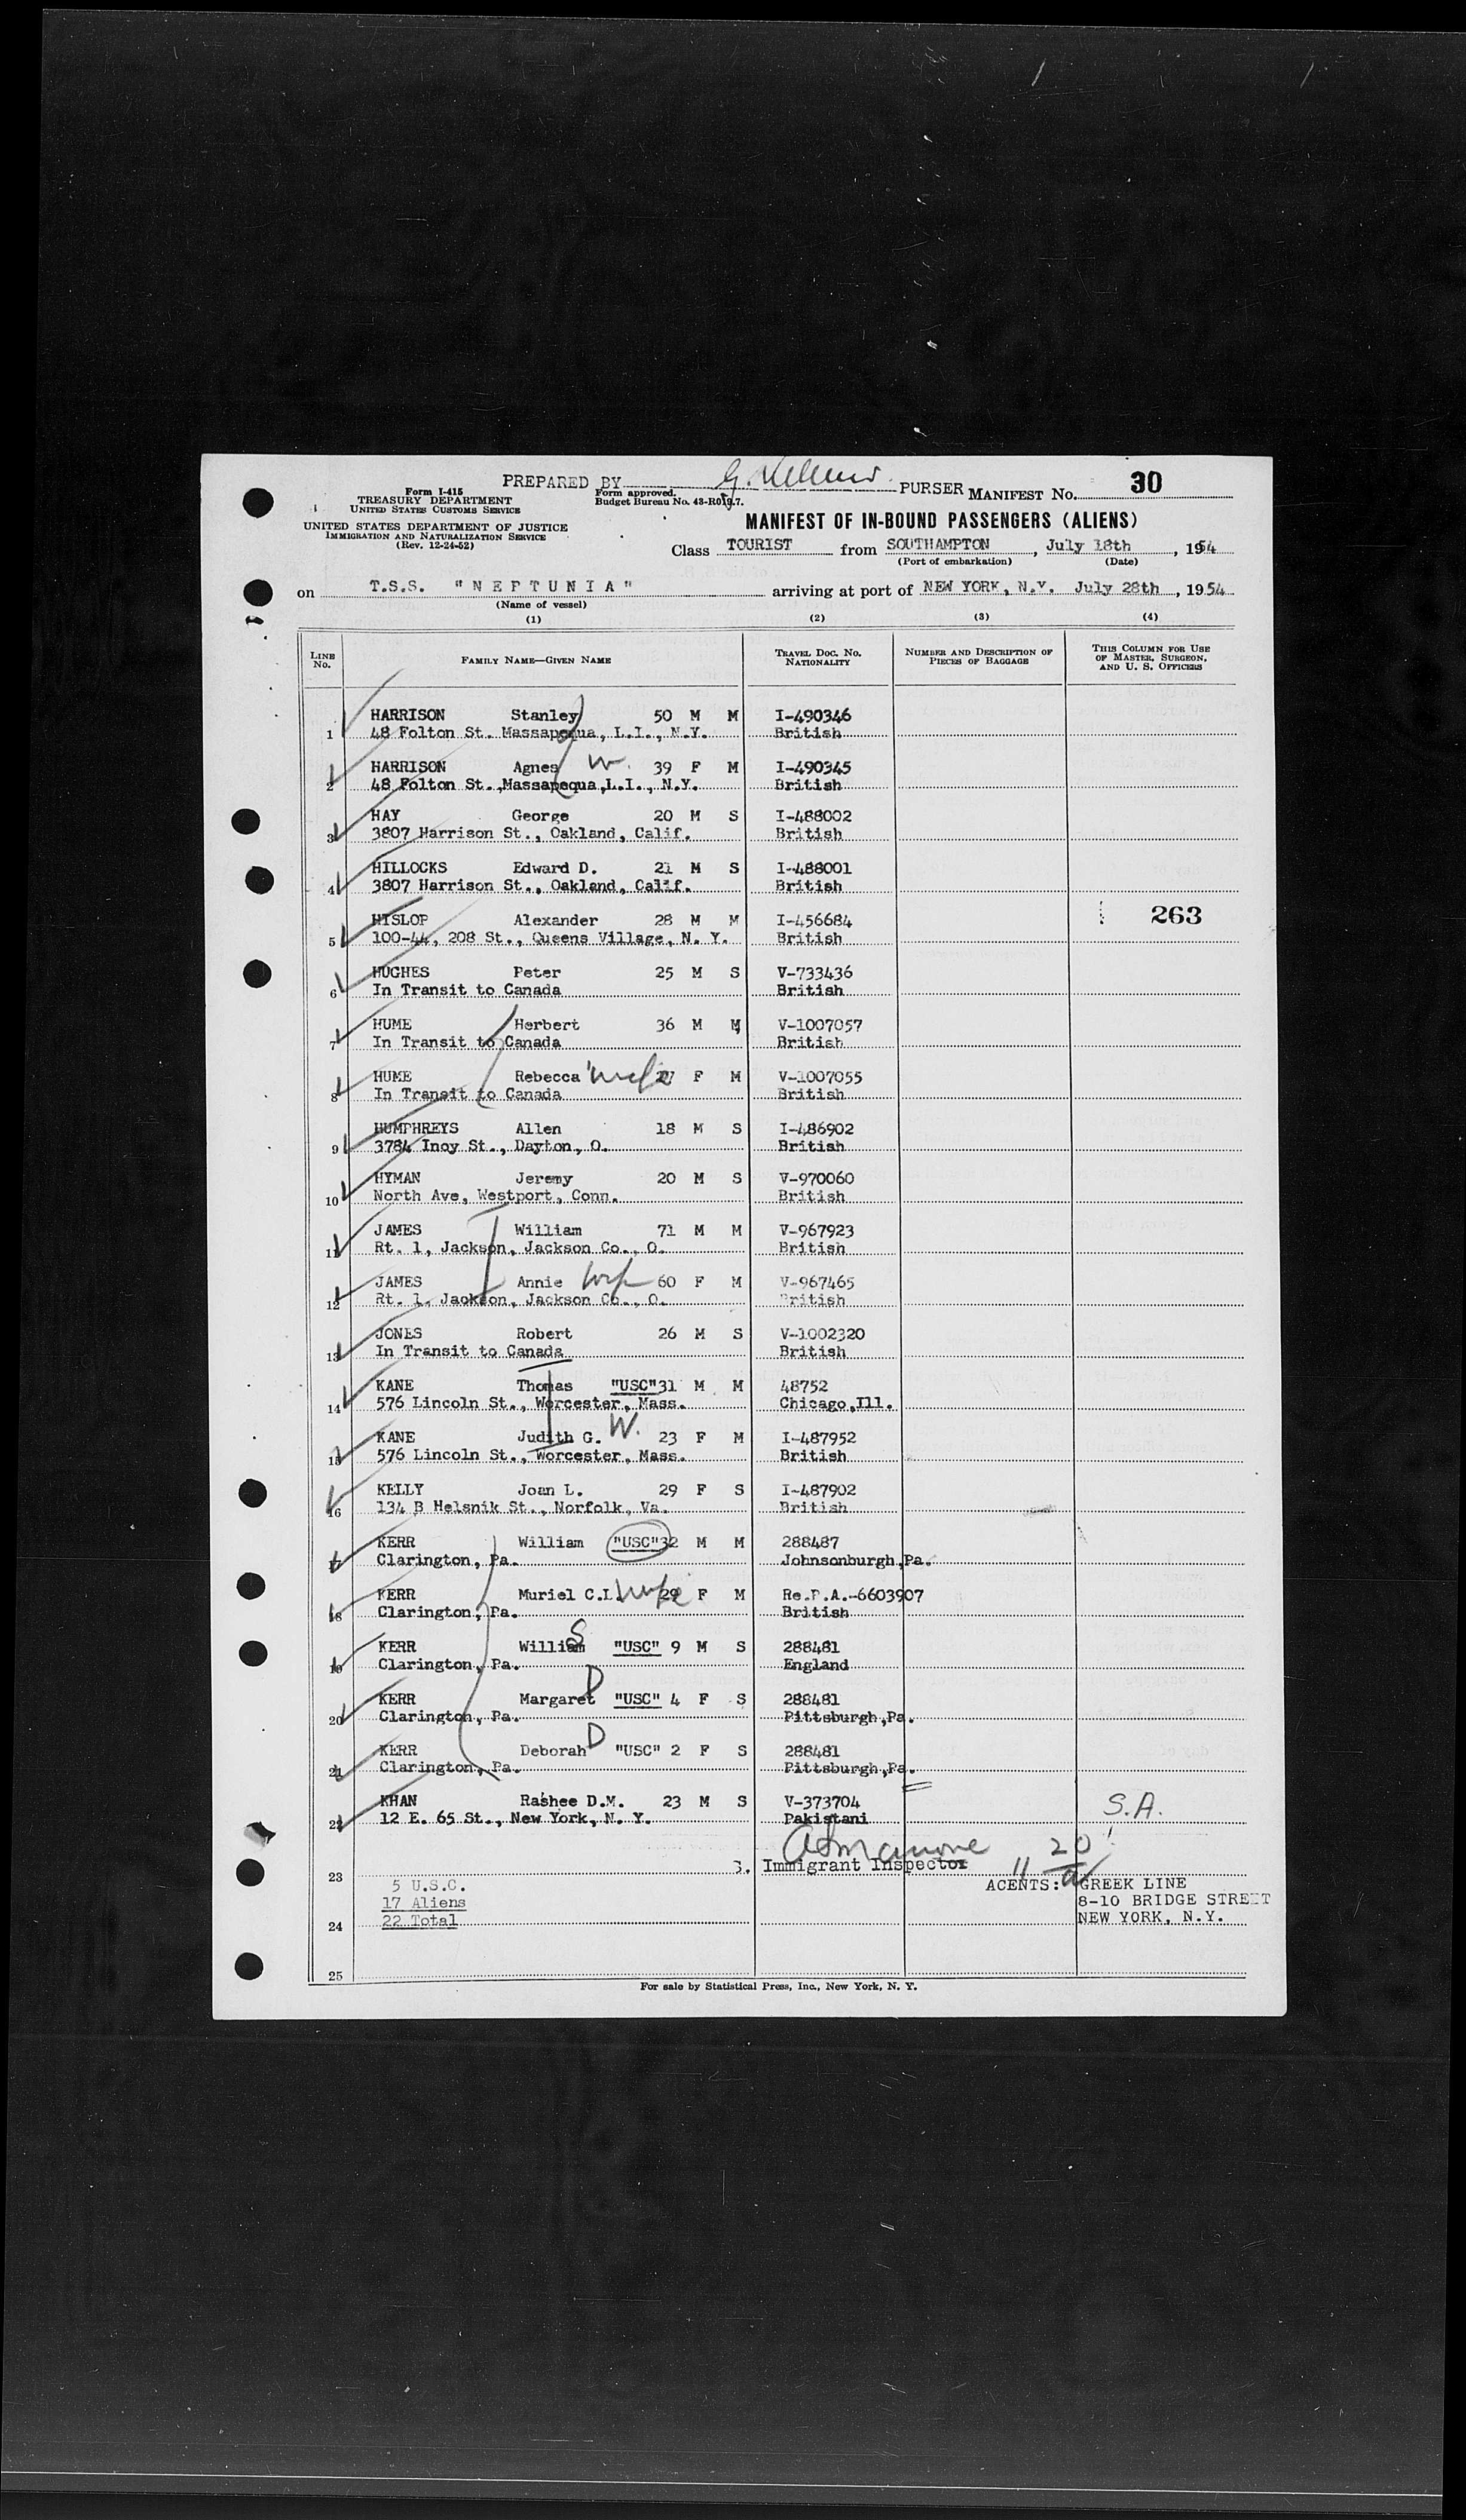 PREPARED BY G. PURSER MANIFEST No. 30
Form I-415
TREASURY DEPARTMENT
UNITED STATES CUSTOMS SERVICE
Form approved.
Budget Bureau No. 43-R019.7.
UNITED STATES DEPARTMENT OF JUSTICE
IMMIGRATION AND NATURALIZATION SERVICE
(Rev. 12-24-52)
MANIFEST OF IN-BOUND PASSENGERS (ALIENS)
Class TOURIST from SOUTHAMPTON, July 18th, 1954
(Port of embarkation) (Date)
on T.S.S. "NEPTUNIA" arriving at port of NEW YORK, N.Y. July 28th, 1954
(Name of vessel)
(1) (2) (3) (4)
LINE No. FAMILY NAME—GIVEN NAME TRAVEL DOC. No. NATIONALITY NUMBER AND DESCRIPTION OF PIECES OF BAGGAGE THIS COLUMN FOR USE OF MASTER, SURGEON, AND U. S. OFFICERS
HARRISON Stanley 50 M M I-490346
1 48 Folton St. Massapequa, L.I., N.Y. British
HARRISON Agnes W. 39 F M I-490345
2 48 Folton St.,Massapequa,L.I., N.Y. British
HAY George 20 M S I-488002
3 3807 Harrison St., Oakland, Calif. British
HILLOCKS Edward D. 21 M S I-488001
4 3807 Harrison St., Oakland, Calif. British
HISLOP Alexander 28 M M I-456684 263
5 100-44, 208 St., Queens Village, N. Y. British
HUGHES Peter 25 M S V-733436
6 In Transit to Canada British
HUME Herbert 36 M M V-1007057
7 In Transit to Canada British
HUME Rebecca wife 27 F M V-1007055
8 In Transit to Canada British
HUMPHREYS Allen 18 M S I-486902
9 3784 Inoy St., Dayton, O. British
HYMAN Jeremy 20 M S V-970060
10 North Ave, Westport, Conn. British
JAMES William 71 M M V-967923
11 Rt. 1, Jackson, Jackson Co., O. British
JAMES Annie wife 60 F M V-967465
12 Rt. 1, Jackson, Jackson Co., O. British
JONES Robert 26 M S V-1002320
13 In Transit to Canada British
KANE Thomas "USC" 31 M M 48752
14 576 Lincoln St., Worcester, Mass. Chicago,Ill.
KANE Judith G. W. 23 F M I-487952
15 576 Lincoln St., Worcester, Mass. British
KELLY Joan L. 29 F S I-487902
16 134 B Helsnik St., Norfolk, Va. British
KERR William "USC" 32 M M 288487
17 Clarington, Pa. Johnsonburgh,Pa.
KERR Muriel C.I. wife 29 F M Re.P.A.-6603907
18 Clarington, Pa. British
KERR William S "USC" 9 M S 288481
19 Clarington, Pa. England
KERR Margaret D "USC" 4 F S 288481
20 Clarington, Pa. Pittsburgh,Pa.
KERR Deborah D "USC" 2 F S 288481
21 Clarington, Pa. Pittsburgh,Pa.
KHAN Rashee D.M. 23 M S V-373704 S.A.
22 12 E. 65 St., New York, N. Y. Pakistani
S. Immigrant Inspector 20
23 5 U.S.C. AGENTS: GREEK LINE
17 Aliens 8-10 BRIDGE STREET
24 22 Total NEW YORK, N.Y.
25
For sale by Statistical Press, Inc., New York, N. Y.